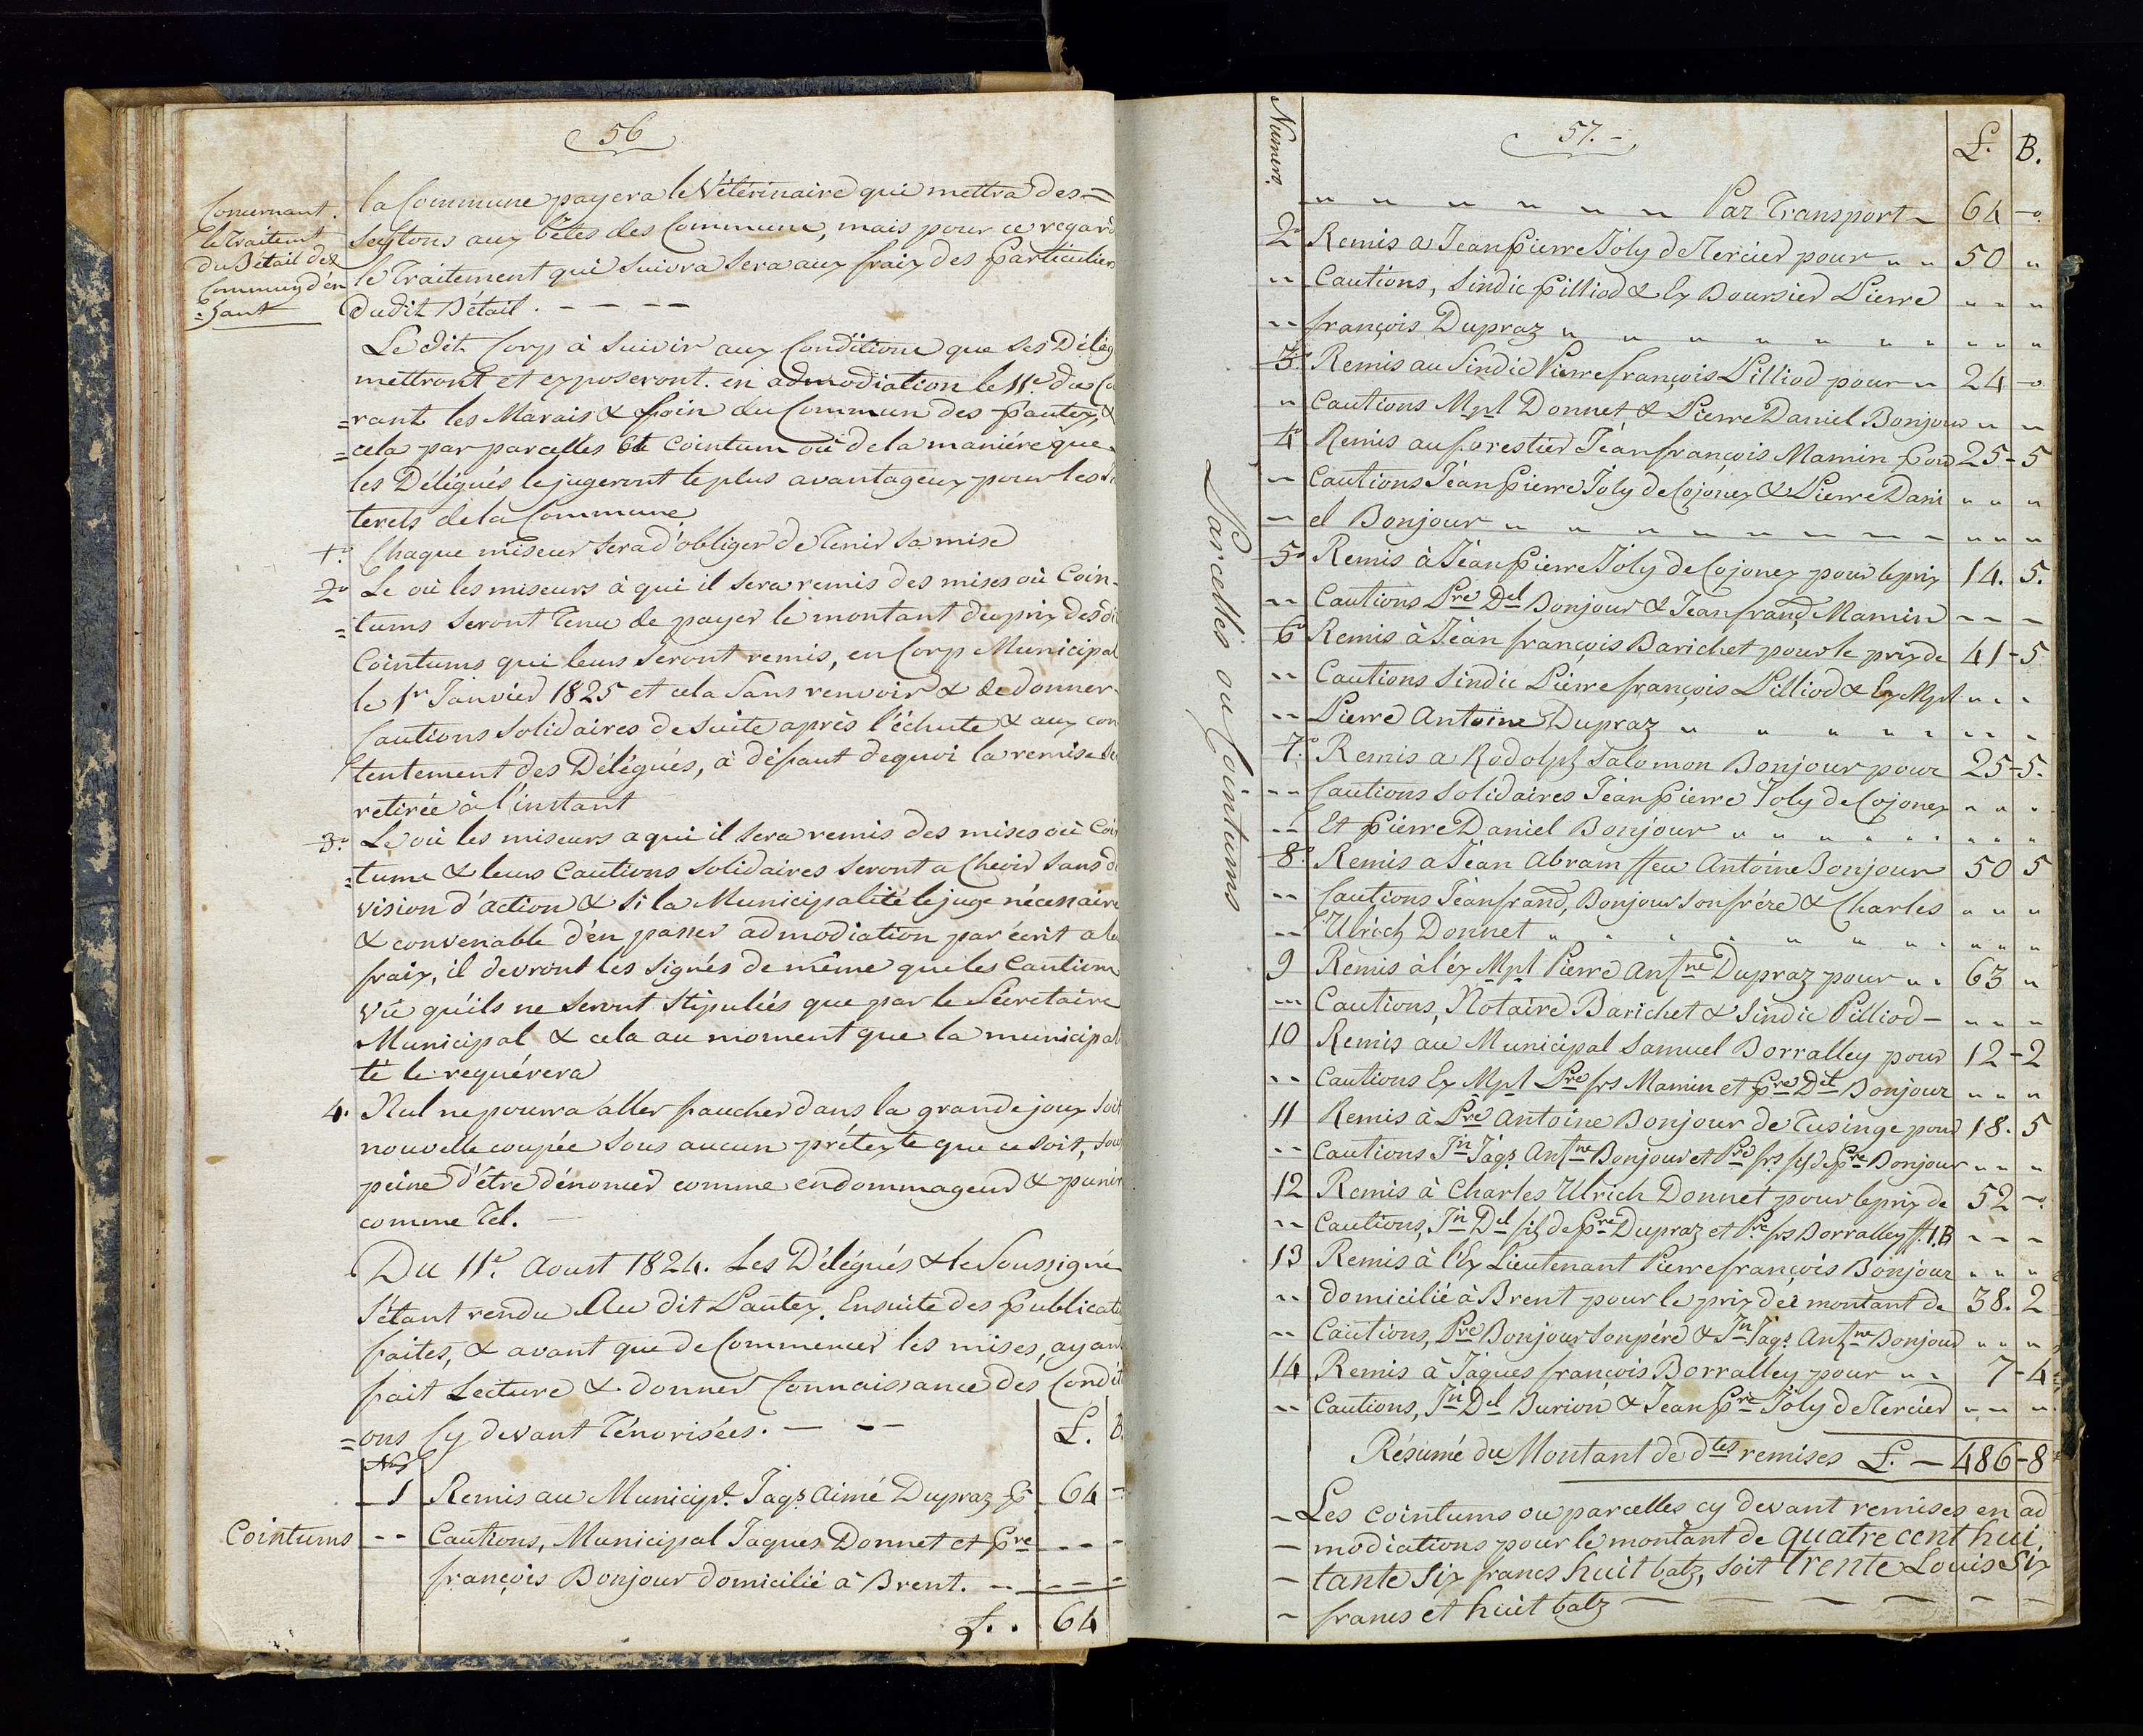 56
Concernant
le Traitemt
du Bétail des
Communs d'en
=haut
la Commune payera le Vétérinaire qui mettra des=
seytons aux bêtes des Commune, mais pour ce regard
le Traitement qui suivra sera aux fraix des Particuliers
dudit Bétail. - - - -
Le dit Corp à suivir aux Conditions que ses Délég
mettront et exposeront en admodiation le 11e du Co
=rant les Marais & foin du Commun des Pautex, &
=cela par parcelles et Cointum où de la maniére que
les Délégués le jugeront le plus avantageux pour les In
terets de la Commune
1o. Chaque miseur sera d'obliger de Tenir sa mise
2o Le où les miseurs à qui il sera remis des mises où Coin-
=tums seront Tenu de payer le montant du prix des dit
Cointums qui leurs seront remis, en Corp Municipal
le 1r Janvier 1825 et cela sans renvoir & de donner
Cautions solidaires de suite après l'échute & aux con
tentement des Délégués, à défaut dequoi la remise se
retirée à l'instant
3o. Le où les miseurs a qui il sera remis des mises où Coin
=tume & leurs Cautions solidaires seront a Chevir sans di
vision d'action & si la Municipalité le juge nécessaire
& convenable d'en passer admodiation par écrit a leu
fraix, il devront les signés de même que les Cautions
vû qu'ils ne seront stipulés que par le Sécretaire
Municipal & cela au moment que la municipali
té le requérera
4. Nul ne pourra aller faucher dans la grande joux soit
nouvelle coupée sous aucun prétexte que ce soit, sous
peine d'être dénoncer comme endommageur & punir
comme Tel. -
Du 11e. Aoust 1824. Les Délégués & le Soussigné
s'étant rendu Au dit Pautex, Ensuite des Publicati
faites, & avant que de Commencer les mises, ayant
fait Lecture & donner Connaissance des Condit
=ons Cy devant Ténorisées. - - - L. B.
Nos
1 Remis au Municipl. Jaqs. Aimé Dupraz Pr 64 -
Cointums -- Cautions, Municipal Jaques Donnet et Pre -- -
françois Bonjour domicilié à Brent. -- -- -
f. . 64
Numero.
57.-
L. B.
" " " " " " Par Transport - 64 -o
2o Remis a Jean Pierre Joly de Tercier pour " " 50 "
" Cautions, Sindic Pilliod & Ex Boursier Pierre " " "
" françois Dupraz " " " " " " " " "
3o Remis au Sindic Pierre françois Pilliod pour " 24 -o
" Cautions Mpl Donnet & Pierre Daniel Bonjour " "
4o Remis au forestier Jean françois Mamin Pour 25-5
" Cautions Jean Pierre Joly de Cojonex & Pierre Dani " " "
" el Bonjour " " " " " " " " " "
5o Remis à Jean Pierre Joly de Cojonex pour le prix 14. 5.
" Cautions Pre Del Bonjour & Jean franç Mamin - - -
6o Remis à Jean françois Barichet pour le prix de 41-5
" Cautions Sindic Pierre françois Pilliod & Ex Mpl " " "
" Pierre Antoine Dupraz " " " " " " " "
7o Remis a Rodolph Salomon Bonjour pour 25-5.
" Cautions Solidaires Jean Pierre Joly de Cojonex " " "
" Et Pierre Daniel Bonjour " " " " " " " "
8o Remis a Jean Abram ffeu Antoine Bonjour 50 5
" Cautions Jean franç, Bonjour son frére & Charles " " "
" Ulrich Donnet " " " " " " " " "
9 Remis à l'éx Mpl Pierre Antne Dupraz pour " " 63 "
" Cautions, Notaire Barichet & Sindic Pilliod - " " "
10 Remis au Municipal Samuel Borralley pour 12-2
" Cautions Ex Mpl Pre frs Mamin et Pre Del Bonjour " " "
11 Remis à Pre Antoine Bonjour de Tusinge pour 18. 5
" Cautions Jn Jaqs Antne Bonjour et Pre frs fils de Pre Bonjour " " "
12 Remis à Charles Ulrich Donnet pour le prix de 52 -o
" Cautions, Jn Del fils de Pre Dupraz et Pre frs Borralley ff. J.B. - - -
13 Remis à l'Ex Lieutenant Pierre françois Bonjour " " "
" domicilié à Brent pour le prix de montant de 38. 2
" Cautions, Pre Bonjour son pére & Jn Jaqs Antne Bonjour " " "
14 Remis à Jaques françois Borralley pour " " 7-4
" Cautions, Jn Del Burion & Jean Pre Joly de Tercier " " "
Résumé du Montant de dtes remises L. - 486-8
- Les cointums ou parcelles cy devant remises en ad
- modiations pour le montant de quatre cent hui,
- tante six francs huit batz, soit Trente Louis Six
- francs et huit batz - - - - - -
Parcelles ou Cointums